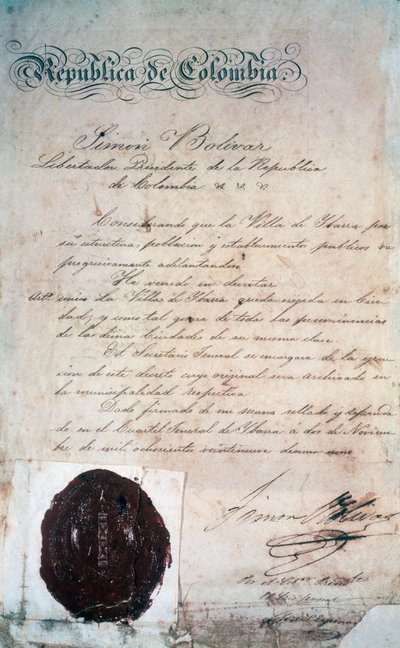 Republica de Colombia.
Simon Bolivar
Libertador Presidente de la Republica
de Colombia
Considerando que la Villa de Ibarra por
su estructura, poblacion y establecimientos publicos va
progresivamente adelantando
He venido en decretar
Artº unico La Villa de Ibarra queda erijida en Ciu
dad; y como tal goza de todas las preeminencias
de las demas Ciudades de su misma clase
El Secretario General se encargara de la ejecu
cion de este decreto cuyo original sera archivado en
la municipalidad respectiva
Dado firmado de mi mano sellado y refrenda
do en el Cuartel General de Ibarra á dos de Noviem
bre de mil ochocientos veintenueve decimo nono
Simon Bolivar
Por el